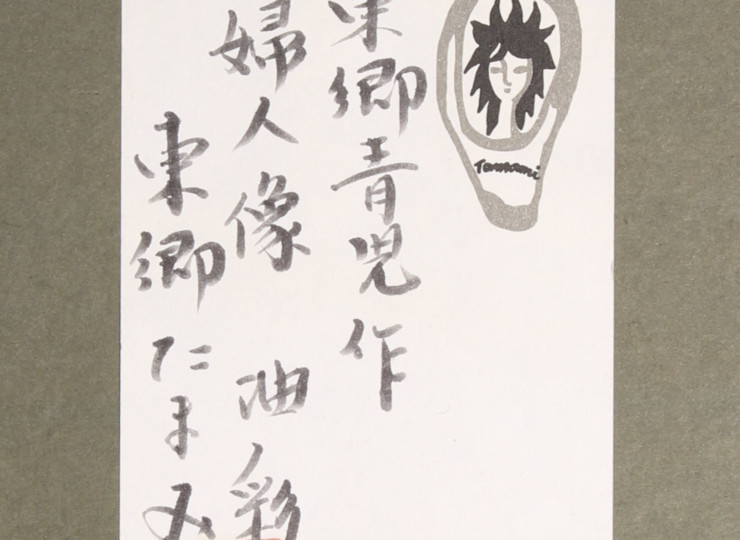 Tamami
東郷青児作
婦人像 油彩
東郷たまみ